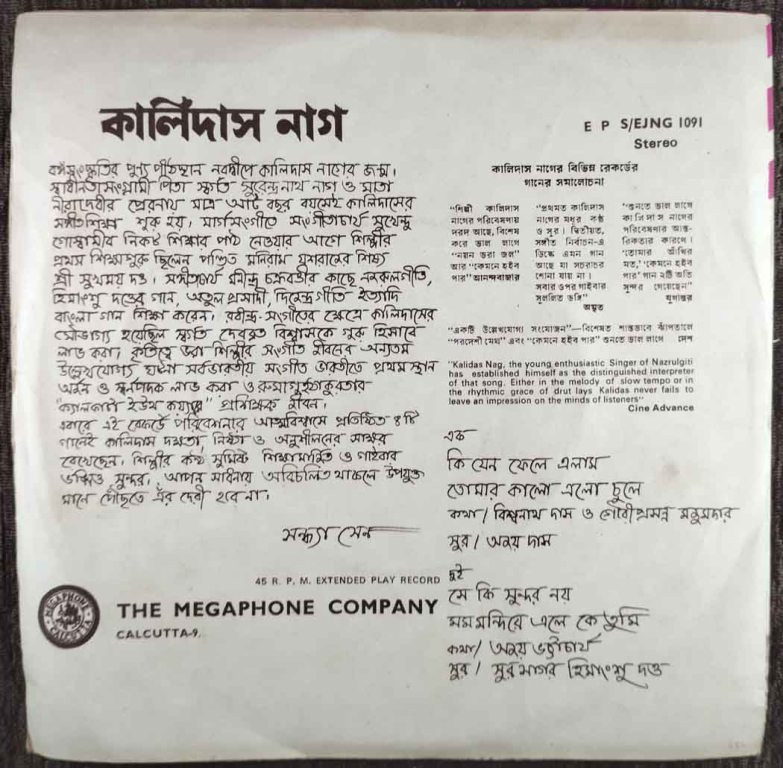 কালিদাস নাগ
বঙ্গসংস্কৃতির পুণ্য পীঠস্থান নবদ্বীপে কালিদাস নাগের জন্ম।
স্বাধীনতাসংগ্রামী পিতা স্বর্গত সুরেন্দ্র নাথ নাগ ও মাতা
নীরাদেবীর প্রেরণায় মাত্র আট বছর বয়সেই কালিদাসের
সঙ্গীত শিক্ষা শুরু হয়। মার্গসংগীতে সংগীতাচার্য সুখেন্দু
গোস্বামীর নিকট শিক্ষার পাঠ নেওয়ার আগে শিল্পীর
প্রথম শিক্ষাগুরু ছিলেন পণ্ডিত মনিরাম যশরাজের শিষ্য
শ্রী সুখময় দত্ত। সঙ্গীতাচার্য মনীন্দ্র চক্রবর্তীর কাছে নজরুলগীতি,
হিমাংশু দত্তের গান, অতুল প্রসাদী, দ্বিজেন্দ্রগীতি ইত্যাদি
বাংলা গান শিক্ষা করেন। রবীন্দ্র-সংগীতের ক্ষেত্রে কালিদাসের
সৌভাগ্য হয়েছিল স্বর্গত দেবব্রত বিশ্বাসকে গুরু হিসাবে
লাভ করা। কৃতিত্বে ভরা শিল্পীর সংগীত জীবনের অন্যতম
উল্লেখযোগ্য ঘটনা সর্বভারতীয় সংগীত ভারতীতে প্রথম স্থান
অর্জন ও স্বর্ণপদক লাভ করা ও রুমাগুহঠাকুরতার
"ক্যালকাটা ইউথ কয়্যারে" প্রশিক্ষক জীবন।
এবারে এই রেকর্ডে পরিবেশনার আত্মবিশ্বাসে প্রতিষ্ঠিত ৪টি
গানেই কালিদাস দক্ষতা, নিষ্ঠা ও অনুশীলনের স্বাক্ষর
রেখেছেন। শিল্পীর কণ্ঠ সুমিষ্ট শিক্ষামার্জিত ও গাইবার
ভঙ্গিও সুন্দর। আপন সাধনায় অবিচলিত থাকলে উপযুক্ত
মানে পৌঁছুতে এঁর দেরী হবে না।
সন্ধ্যা সেন
45 R. P. M. EXTENDED PLAY RECORD
THE MEGAPHONE COMPANY
CALCUTTA-9.
MEGAPHONE
CALCUTTA
E P S/EJNG 1091
Stereo
কালিদাস নাগের বিভিন্ন রেকর্ডের
গানের সমালোচনা
"শিল্পী কালিদাস
নাগের পরিবেশনায়
দরদ আছে, বিশেষ
করে ভাল লাগে
"নয়ন ভরা জল"
আর "কেমনে হইব
পার" আনন্দবাজার
"প্রথমত কালিদাস
নাগের মধুর কণ্ঠ
ও সুর। দ্বিতীয়ত,
সঙ্গীত নির্বাচন-এ
ডিস্কে এমন গান
আছে যা সচরাচর
শোনা যায় না।
সবার ওপর গাইবার
সুললিত ভঙ্গি"
অমৃত
"শুনতে ভাল লাগে
কালিদাস নাগের
পরিবেশনার আন্ত-
রিকতার কারণে।
'তোমার আঁখির
মত,' 'কেমনে হইব
পার' গান ২টি অতি
সুন্দর গেয়েছেন"
যুগান্তর
"একটি উল্লেখযোগ্য সংযোজন"—বিশেষত শান্তভাবে ঝাঁপতালে
"পরদেশী মেঘ" এবং "কেমনে হইব পার" শুনতে ভাল লাগে দেশ
"Kalidas Nag, the young enthusiastic Singer of Nazrulgiti
has established himself as the distinguished interpreter
of that song. Either in the melody of slow tempo or in
the rhythmic grace of drut lays Kalidas never fails to
leave an impression on the minds of listeners"
Cine Advance
এক
কি যেন ফেলে এলাম
তোমার কালো এলো চুলে
কথা / বিশ্বনাথ দাস ও গৌরীপ্রসন্ন মজুমদার
সুর / অজয় দাস
দুই
সে কি সুন্দর নয়
মম মন্দিরে এলে কে তুমি
কথা / অজয় ভট্টাচার্য
সুর / সুরসাগর হিমাংশু দত্ত